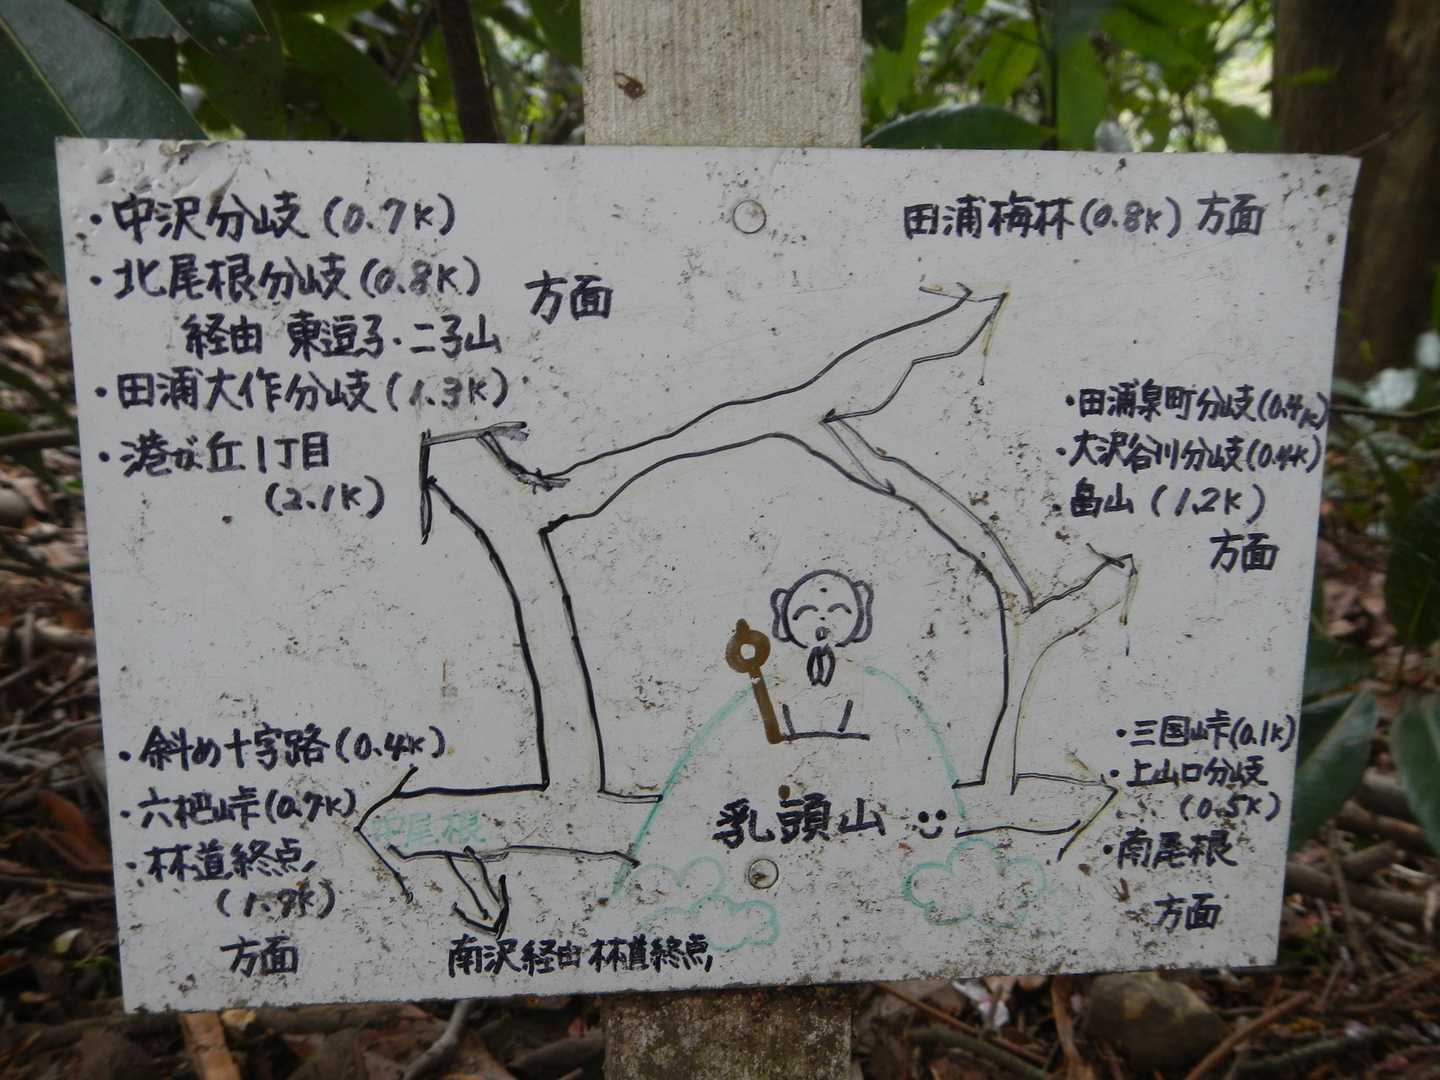 ・中沢分岐(0.7K)
・北尾根分岐(0.8K)
経由 東逗子・二子山
方面
・田浦大作分岐(1.3K)
・港が丘1丁目
(2.1K)
田浦梅林(0.8K)方面
・田浦泉町分岐(0.4K)
・大沢谷川分岐(0.4K)
・畠山(1.2K)
方面
・斜め十字路(0.4K)
・六杷峠(0.7K)
・林道終点
(1.9K)
方面
中尾根
南沢経由林道終点
乳頭山
・三国峠(0.1K)
・上山口分岐
(0.5K)
・南尾根
方面